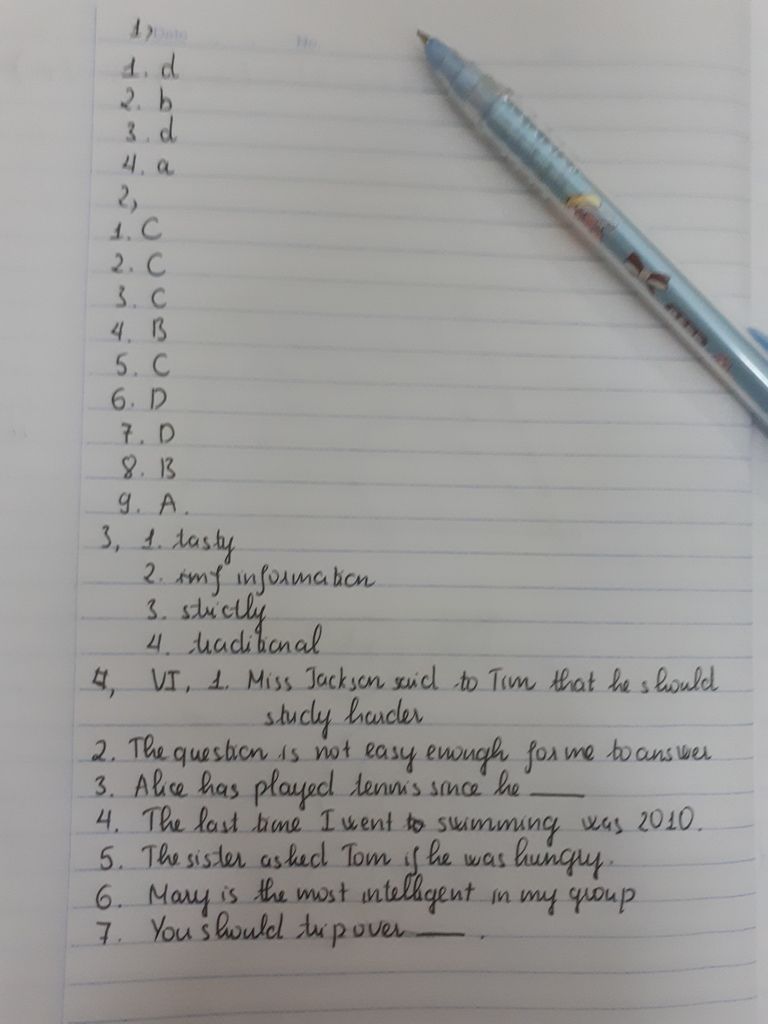 1)
1. d
2. b
3. d
4. a
2,
1. C
2. C
3. C
4. B
5. C
6. D
7. D
8. B
9. A.
3, 1. tasty
2. information
3. strictly
4. traditional
4, VI, 1. Miss Jackson said to Tim that he should
study harder
2. The question is not easy enough for me to answer
3. Alice has played tennis since he ___
4. The last time I went to swimming was 2010.
5. The sister asked Tom if he was hungry.
6. Mary is the most intelligent in my group
7. You should trip over ___.